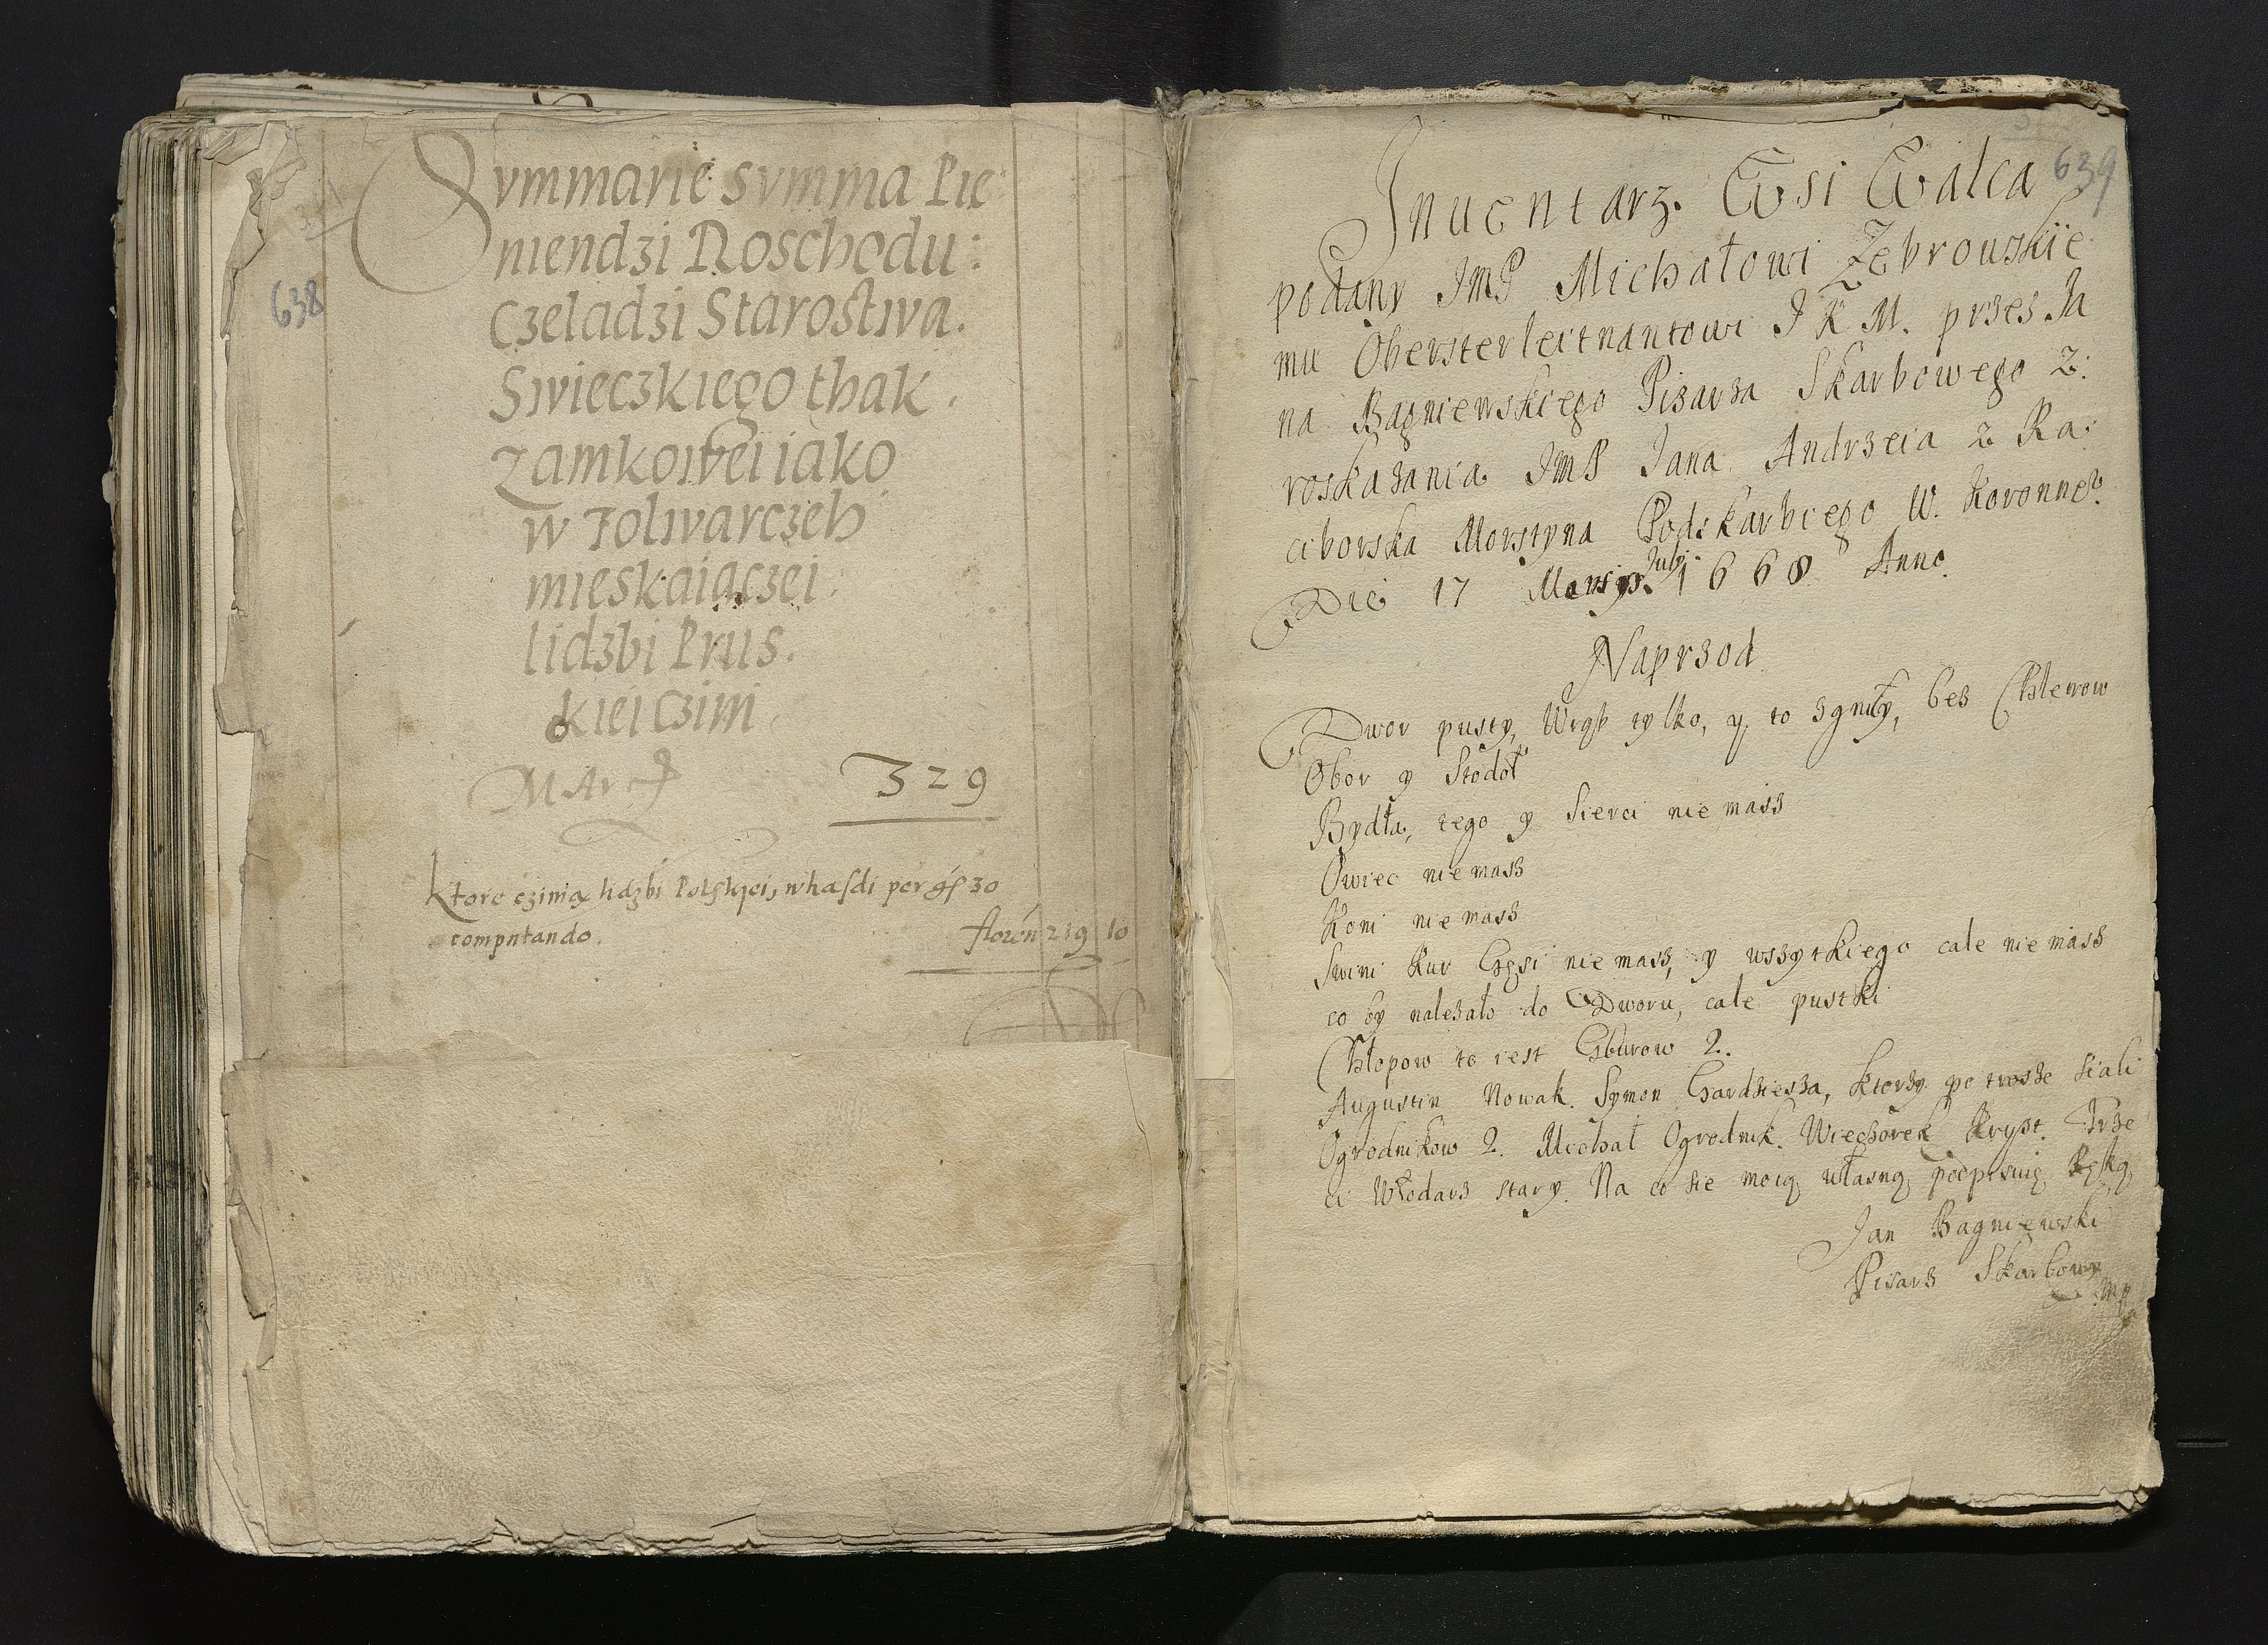 638
Summarie summa Pie
niendzi Roschodu:
Czeladzi Starostwa.
Swieczkiego thak
zamkowei iako
w Folwarczeh
mieskaiączei
lidzbi Prus.
kiei Czini
Mar 329
ktore czinią lidzbi Polskiei, w kasdi per gs 30
computando. floren 219 10
639
Inuentarz. Wsi Walca
podany JmP Michałowi Zebrouskie
mu Obersterleitnantowi J K M. przes Ja
na Bagniewskiego Pisarza Skarbowego z
roskazania JmP Jana Andrzeia z Ra:
ciborska Morstyna Podskarbiego W. Koronne
Die 17 Mensys July 1668 Anno
Naprzod
Dwor pusty, Wrąb tylko, y to zgniły, bes Chlewow
Obor y Stodoł
Bydła, tego y Sierci nie masz
Owiec nie masz
Koni nie masz
Swini Kur Gęsi nie masz, y wszytkiego cale nie masz
co by nalezało do Dworu, cale pustki
Chłopow to iest Gburow 2.
Augustin Nowak. Symon Gardziesza, ktorzy po trosze siali
Ogrodnikow 2. Michał Ogrodnik. Wieczorek Kryst. Trze
ci Włodarz stary. Na co sie moią własną podpisuię Ręką
Jan Bagniewski
Pisarz Skarbowy
mp